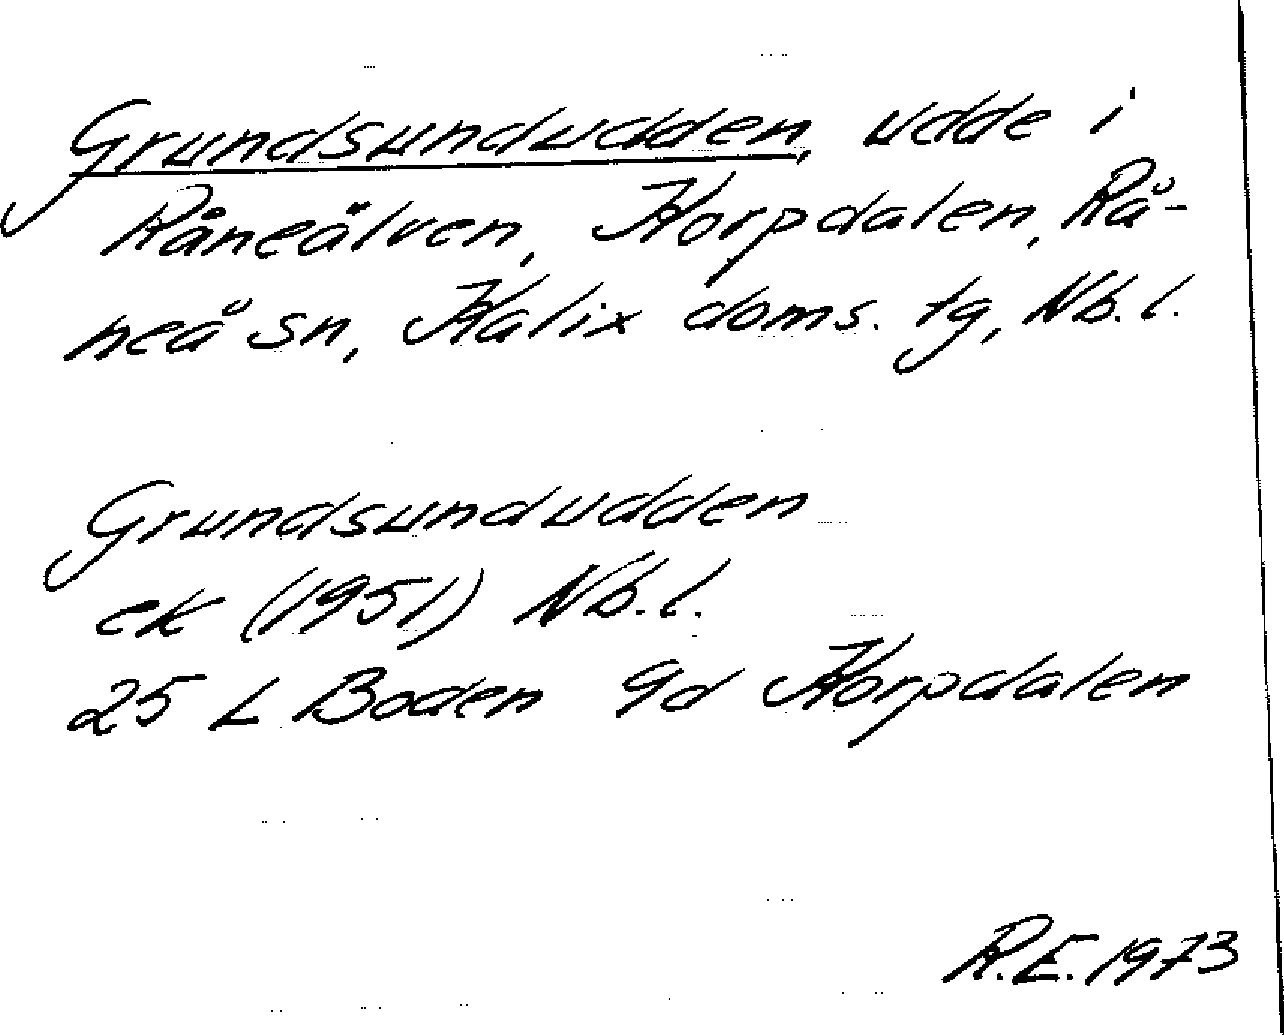 Grundsundudden, udde i
Råneälven, Korpdalen, Rå-
neå sn, Kalix doms. tg, Nb. l.
Grundsundudden
ek (1951) Nb. l.
25 L Boden 9d Korpdalen
R.E. 1973